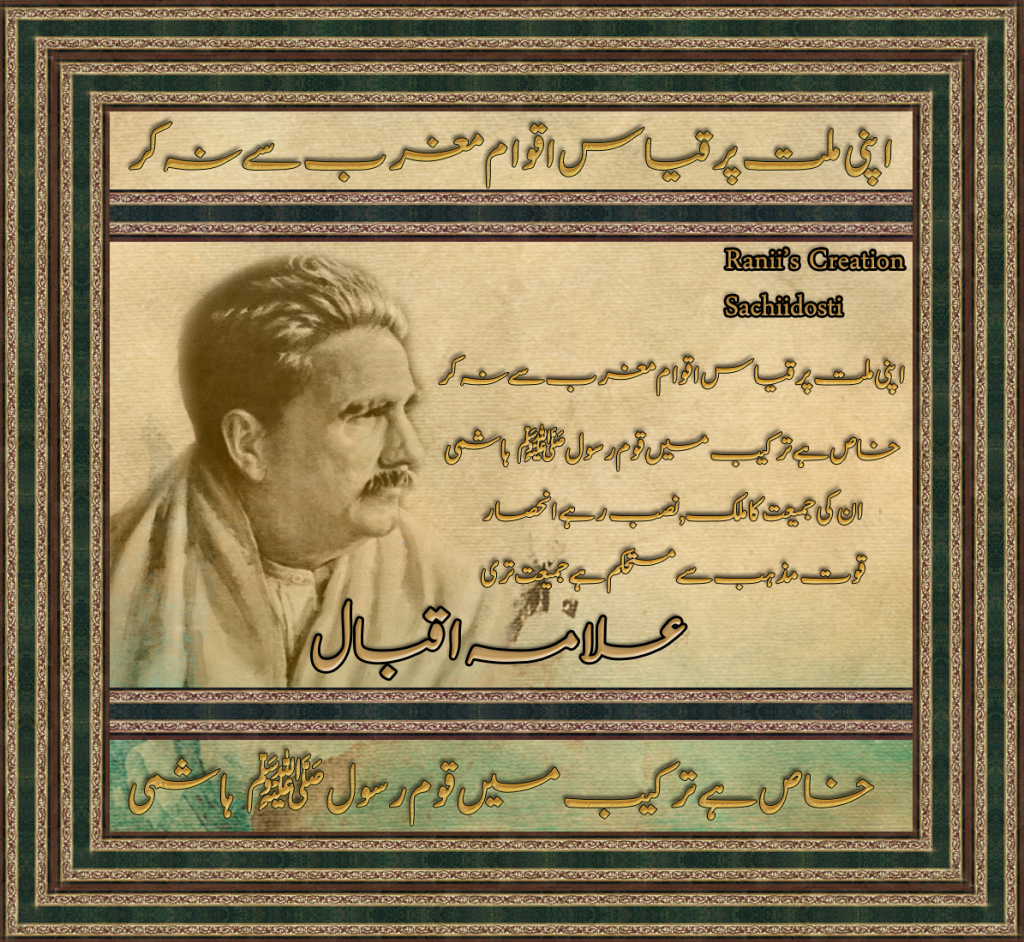 اپنی ملت پر قیاس اقوام مغرب سے نہ کر
Ranii's Creation
Sachiidosti
اپنی ملت پر قیاس اقوام مغرب سے نہ کر
خاص ہے ترکیب میں قوم رسول ﷺ ہاشمی
ان کی جمیعت کا ملک , نصب رہے انحصار
قوت مذہب سے مستحکم ہے جمیعت تری
علامہ اقبال
خاص ہے ترکیب میں قوم رسول ﷺ ہاشمی